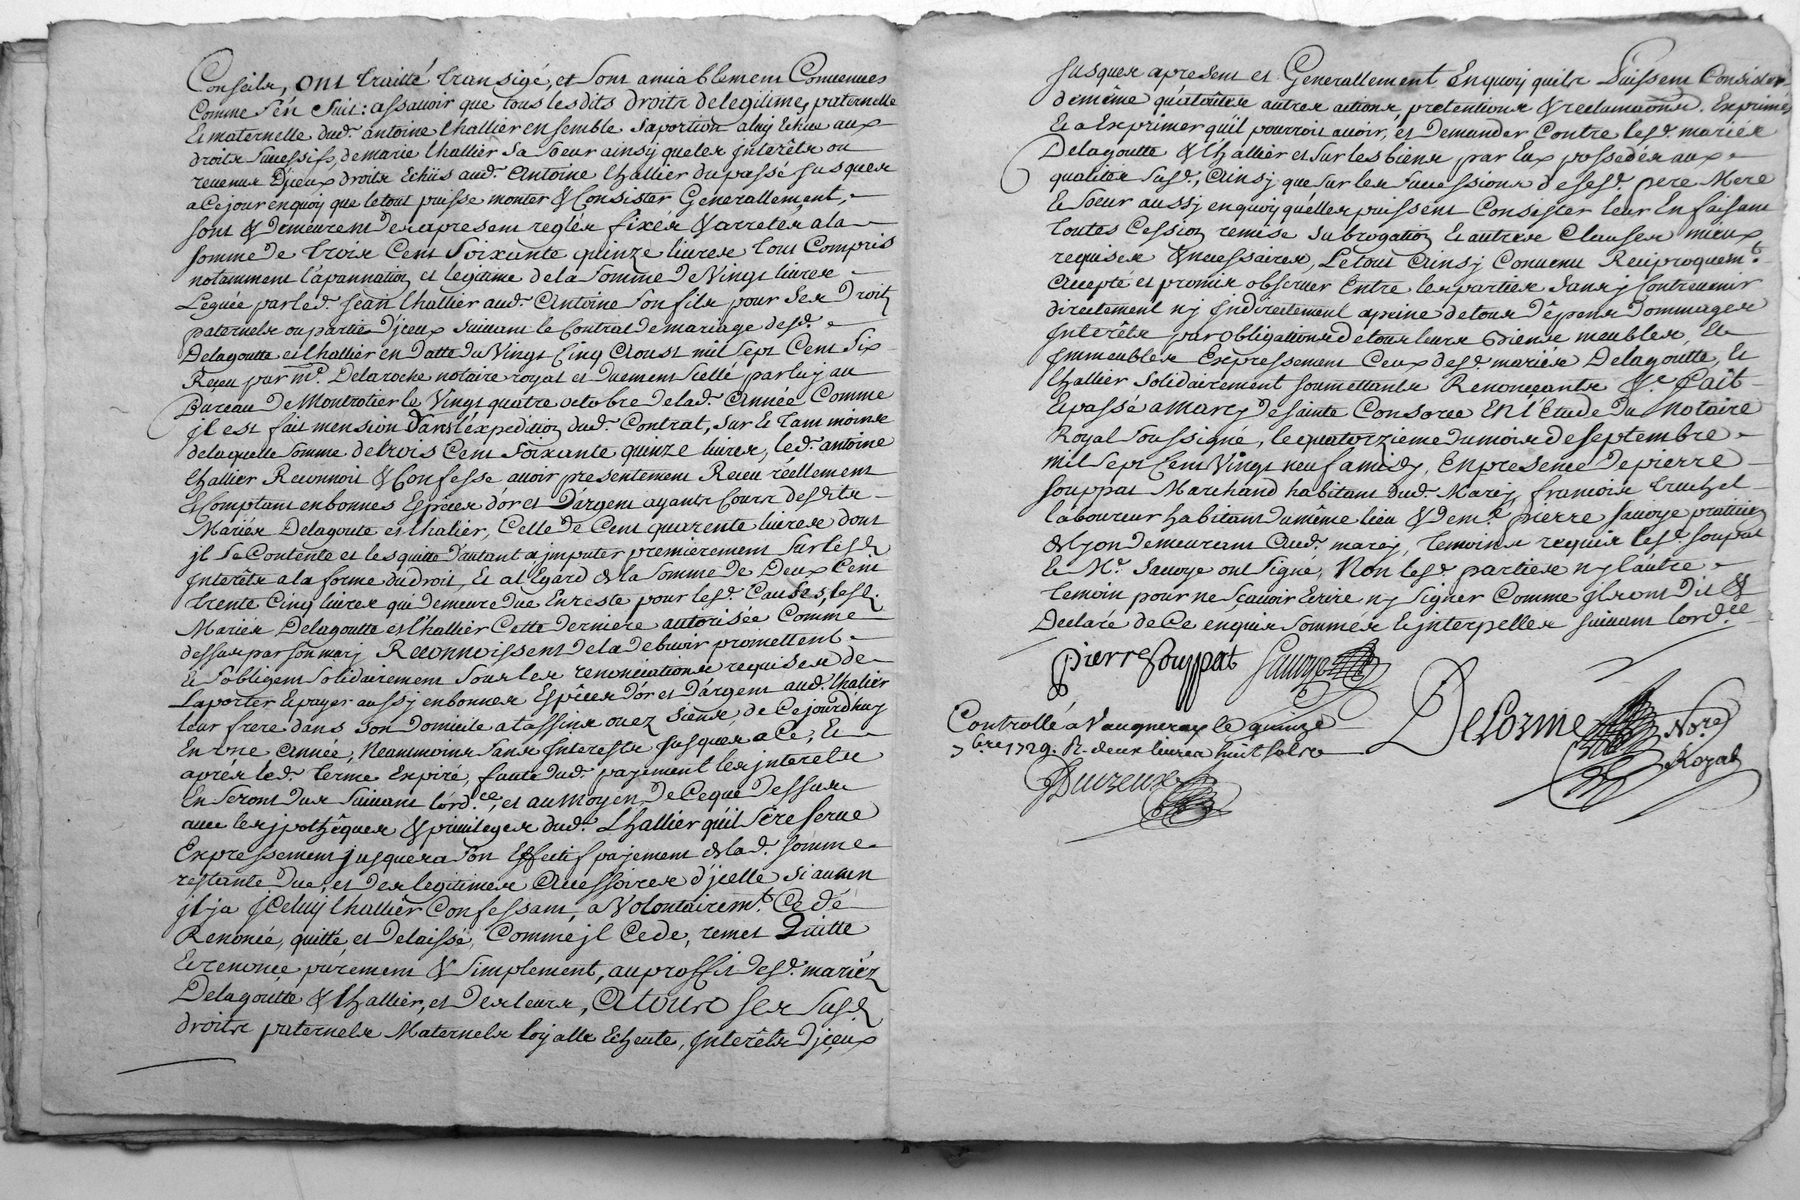 Conseils, ont traitté transigé, et sont amiablement Convenues
Comme s'en suit: assavoir que tous lesdits droits de legitime, paternelle
Et maternelle dud. antoine Challier ensemble sa portion a luy Echue aux
droits successifs de marie Challier sa soeur ainsy que les Interêts ou
revenus D'jceux droits Echûs aud. Antoine Challier du passé jusques
a Ce jour en quoy que le tout puisse monter & Consister Generallement,
sont & Demeurent Des apresent reglés fixés & arretés a la
somme de trois Cent Soixante quinze livres tout Compris
notamment l'apannation et legitime de la somme De Vingt livres
Leguée par led. Jean Challier aud. Antoine son fils pour ses Droits
paternels ou partie D'jceux suivant le Contrat de mariage desd.
Delagoutte et Challier en Datte du Vingt Cinq Aoust mil sept Cent six
Receu par me. Delaroche notaire royal et Duement scellé par luy au
Bureau De Montrotier le Vingt quatre octobre de lad. Année Comme
jl est fait mension Dans l'éxpedition dud. Contrat, sur & tant moins
de laquelle somme de trois Cent Soixante quinze livres, led. antoine
Challier Reconnoit & Confesse avoir presentement Receu réellement
& Comptant en bonnes Espêces d'or et D'argent ayants Cours desdits
Mariés Delagoute et Chalier, Celle De Cent quarente livres dont
jl se Contente et les quitte D'autant a jmputer premierement sur lesd.
Interêts a la forme du droit, Et a l'Egard de la somme De Deux Cent
trente Cinq livres qui Demeure Due En reste pour lesd. Causes, lesd.
Mariés Delagoutte et Challier Cette Derniere autorisée Comme
dessus par son mary Reconnoissent De la debvoir promettent
& s'obligent solidairement sous les renonciations requises de
La porter & payer aussy en bonnes Espêces D'or et D'argent aud. Chalier
leur frere dans son Domicile a tassins ou ez siens, de Ce jourd'huy
En une Année, Neammoins sans Interests jusques a Ce; Et
après led. terme Expiré, faute dud. payement les jnterets
En seront dus suivant l'ord.ce, et au Moyen De Ce que Dessus
avec les jpothêques & privileges dud. Challier qu'il se reserve
Expressement jusques a son Effectif pajement de lad. somme
restante Due, et Des legitimes Accessoires d'jcelle si aucun
jl ja jCeluy Challier Confessant, a Volontairemt. Cedé
Renoncé, quitté, et Delaissé, Comme jl Cede, remet Quitte
Et renonce purement & simplement, au proffit Desd. mariéz
Delagoutte & Challier, et Des leurs, A tous ses susd.
droits paternels Maternels loyalle Echeute, Interêts D'jceux
jusques apresent et Generallement En quoy quils Puissent Consister
de même qu'atoûtes autres actions, pretentions & reclamations Exprimés
Et a Exprimer qu'il pourroit avoir, et Demander Contre lesd. mariés
Delagoutte & Challier et sur les biens par Eux possedés aux
qualités susd., Ainsj que sur les successions desesd. pere Mere
& soeur aussj en quoy qu'elles puissent Consister leur En faisant
toutes Cession remise subrogation & autres Clauses mieux
requises & necessaires, Le tout Ainsj Convenu Reciproquemt.
Accepté et promis observer Entre les parties sans j Contrevenir
directement nj Indirectement a peine de tous Dépens Dommages
Interêts par obligations de tous leurs Biens meubles, Et
Immeubles Expressement Ceux desd. mariés Delagoutte, Et
Challier solidairement soumettants Renonçants &c. Fait
& passé a Marcy De sainte Consorce En l'Etude Du Notaire
Royal soussigné, le quatorzieme du mois De septembre
mil sept Cent Vingt neuf a midy, En presence De pierre
souppat Marchand habitant dud. Marcy, francois truchet
laboureur habitant du même lieu & De mr. pierre sauvoye praticien
de lyon demeurant Aud. marcy, temoins requis lesd. soupat
& Mr. Sauvoye ont signé, Non lesd. parties ny l'autre
temoin pour ne sçavoir Ecrire nj signer Comme jls ont Dit &
Declaré de Ce enquis sommés & jnterpellés suivant l'ord.ce
pierre souppat Sauvoye
Delorme No.re
Royal
Controllé à Vaugneray le quinze
7bre 1729. R. deux livres huit sols